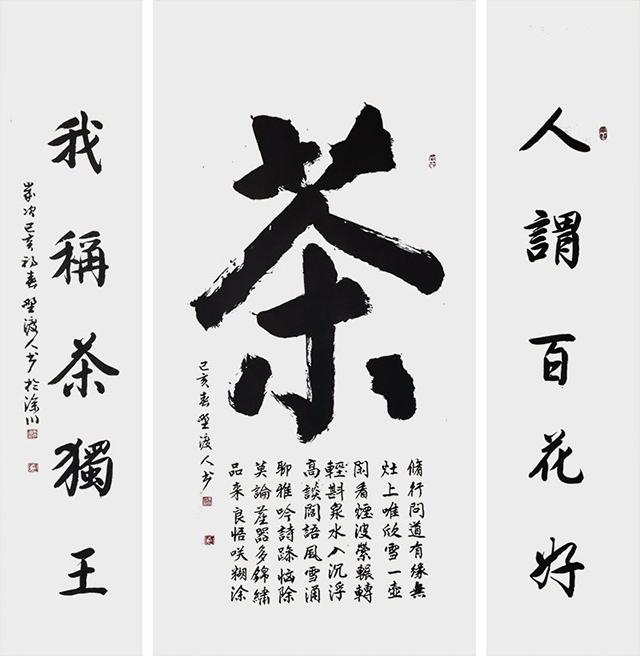 人謂百花好
茶
脩行問道有緣無
灶上唯欣雪一壺
閑看煙波縈輾轉
輕斟泉水入沉浮
高談闊語風雪涌
聊雅吟詩疎惱除
莫論器多錦繡
品来良悟咲糊涂
己亥春埜渡人书
我稱茶獨王
歲次己亥初春埜渡人书於滁川